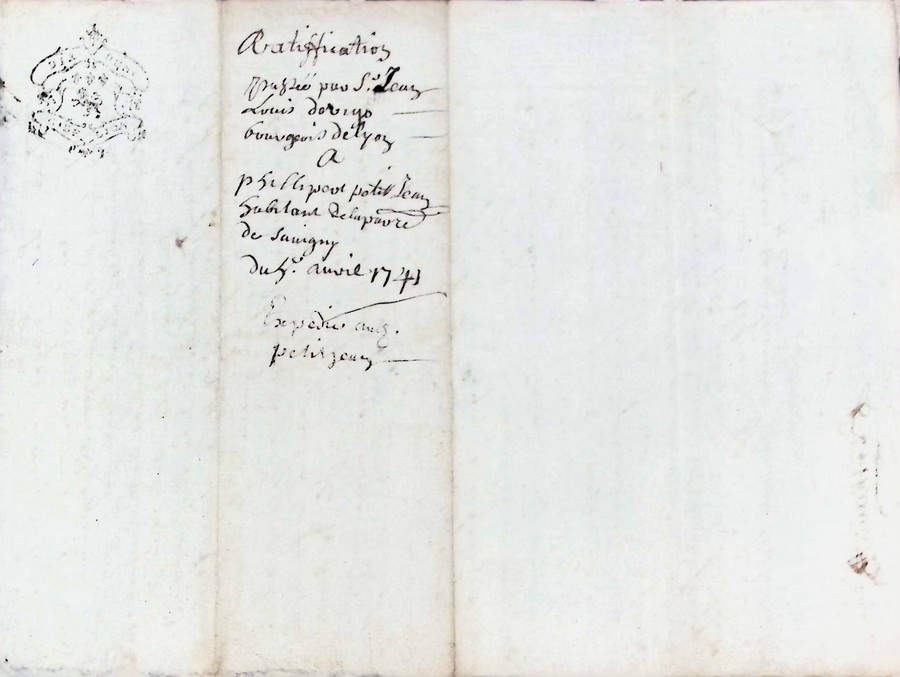 Ratiffication
passée par Sr. Jean
Louis
bourgeois de lyon
A
phillipert petit Jean
habitant de la parre
de savigny
du 5e. avril 1741
Expédié au d.
petit jean